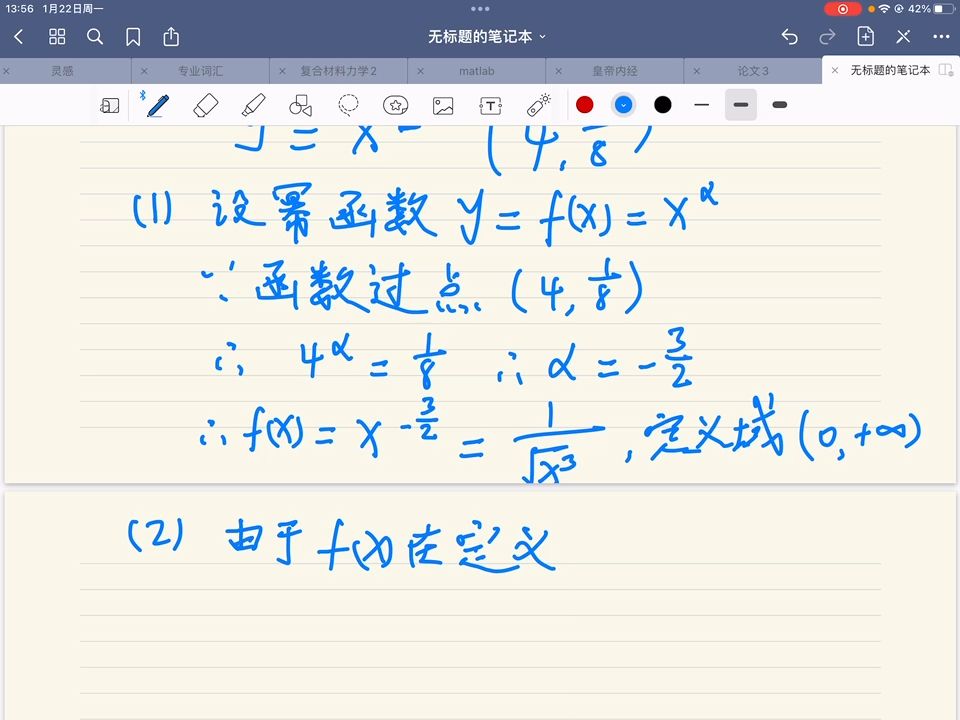 13:56 1月22日周一
42%
无标题的笔记本
灵感 专业词汇 复合材料力学2 matlab 皇帝内经 论文3 无标题的笔记本
(4, 1/8)
(1) 设幂函数 y = f(x) = x^α
∵ 函数过点 (4, 1/8)
∴ 4^α = 1/8 ∴ α = -3/2
∴ f(x) = x^(-3/2) = 1/√x³ , 定义域 (0, +∞)
(2) 由于 f(x) 在定义